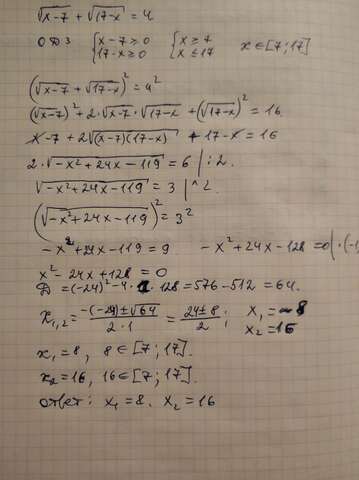 √x-7 + √17-x = 4
ОДЗ { x-7≥0 17-x≥0 { x≥7 x≤17 x∈[7;17]
(√x-7 + √17-x)² = 4²
(√x-7)² + 2·√x-7·√17-x + (√17-x)² = 16
x-7 + 2√(x-7)(17-x) + 17-x = 16
2·√-x²+24x-119 = 6 | :2.
√-x²+24x-119 = 3 | ^2.
(√-x²+24x-119)² = 3²
-x²+24x-119 = 9 -x²+24x-128 = 0 | ·(-1
x²-24x+128 = 0
D = (-24)²-4·1·128 = 576-512 = 64.
x₁,₂ = -(-24)±√64 / 2·1 = 24±8 / 2 ; x₁ = 8 x₂ = 16
x₁ = 8, 8∈[7;17].
x₂ = 16, 16∈[7;17].
ответ: x₁ = 8. x₂ = 16